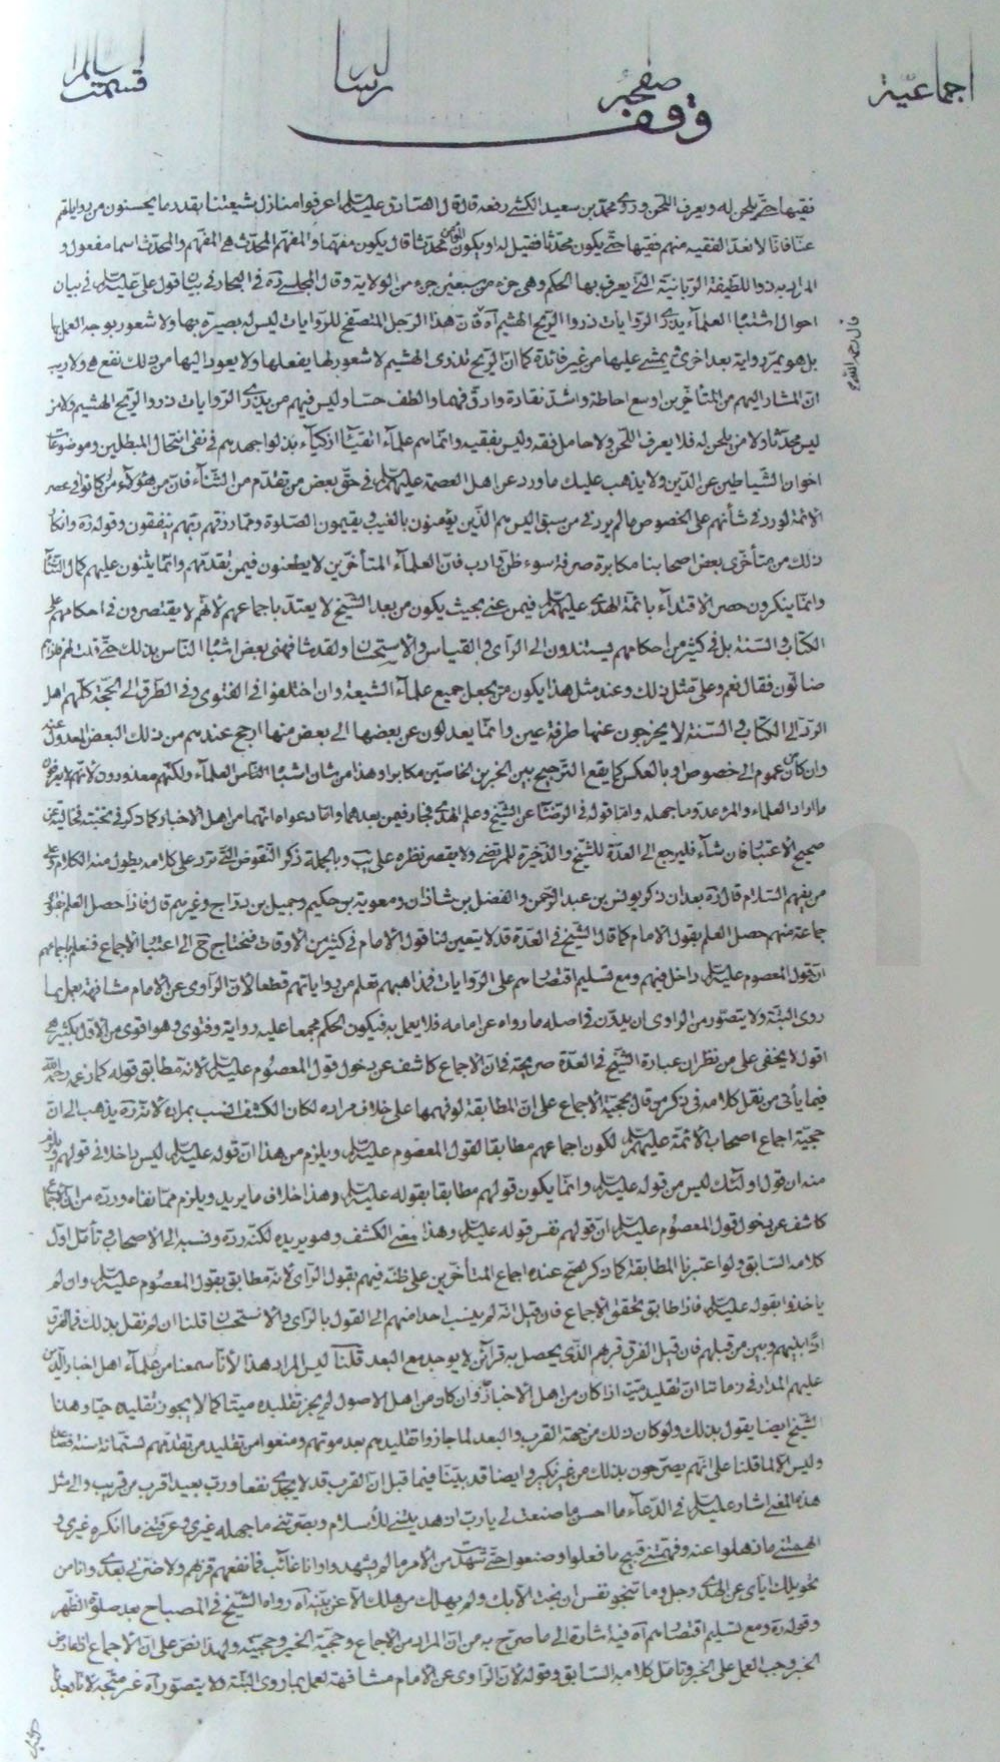 اجماعية صفحه رسالة قسمت
وقف
فقيها حتى يلحن له ويعرف اللحن وروى محمد بن سعيد الكشي رفعه قال قال الصادق عليه السلم اعرفوا منازل شيعتنا بقدر ما يحسنون من رواياتهم
عنا فانا لا نعد الفقيه منهم فقيها حتى يكون محدثا فقيل له او يكون المؤمن محدثا قال يكون مفهما والمفهم المحدث هي المفهم والمحدث اسما مفعول و
المراد به ذوا اللطيفة الربانية التي يعرف بها الحكم وهي جزء من سبعين جزء من الولاية وقال المجلسي ره في البحار في بيان قول علي عليه السلم في بيان
احوال اشباه العلماء يذري الروايات ذروا الريح الهشيم آه فان هذا الرجل المتصفح للروايات ليس له بصيرة بها ولا شعور بوجه العمل بها
بل هو يمر رواية بعد اخرى يمشي عليها من غير فائدة كما ان الريح تذري الهشيم لا شعور لها بفعلها ولا يعود اليها من ذلك نفع هي ولا ريب
ان المشار اليهم من المتأخرين اوسع احاطة واشد نقادة وادق فهما والطف حسا وليس فيهم من يذري الروايات ذرو الريح الهشيم ولا من
ليس محدثا ولا من يلحن له فلا يعرف اللحن ولا حامل فقه وليس بفقيه وانما هم علماء اتقياء ازكياء بذلوا جهدهم في نفي انتحال المبطلين وموضوعات
اخوان الشياطين عن الدين ولا يذهب عليك ما ورد عن اهل العصمة عليهم السلم في حق بعض من تقدم من الثناء فان من هؤلاء من لو كانوا في عصر
الائمة لورد في شأنهم على الخصوص ما لم يرد في من سبق اليس هم الذين يؤمنون بالغيب ويقيمون الصلوة ومما رزقهم ربهم ينفقون وقوله ره وانكار
ذلك من متأخري بعض اصحابنا مكابرة صرفة سوء ظن وارب فان العلماء المتأخرين لا يطعنون فيمن تقدمهم وانما يثنون عليهم كمال الثناء
وانما ينكرون حصر الاقتداء بائمة الهدى عليهم السلم فيمن عنى بحيث يكون من بعد الشيخ لا يعتد باجماعهم لانهم لا يقتصرون في احكامهم على
الكتاب والسنة بل في كثير من احكامهم يستندون الى الرأي والقياس والاستحسان ولقد شافهني بعض اشباه الناس بذلك حتى قلت لهم فهل هم
ضالون فقال نعم وعلى مثل ذلك وعند مثل هذا يكون من يجعل جميع علماء الشيعة وان اختلفوا في الفتوى وفي الطرق الى الحجة كلهم اهل
الرد الى الكتاب والسنة لا يخرجون عنها طرفة عين وانما يعدلون عن بعضها الى بعض منها ارجح عندهم من ذلك البعض المعدول عنه
وان كان من عموم الى خصوص او بالعكس كما يقع الترجيح بين الخبرين الخاصين مكابرا وهذا من شان اشباه الناس العلماء ولكنهم معذورون لانهم لا يعرفون
ما اراد العلماء والمرء عدو ما جهله واما قوله في الرضا عن الشيخ وعلم الهدى فجار فيمن بعدهما واما دعواه انهما من اهل الاخبار كما ذكر في
صحيح الاعتبار فان شاء فليرجع الى العدة للشيخ والذخيرة للمرتضى ولا يقصر نظره على يب وبالجملة ذكر النقوض التي ترد على كلامه يطول منه الكلام وعلى
من يفهم السلام قال ره بعد ان ذكر يونس بن عبد الرحمن والفضل بن شاذان ومعوية بن حكيم وجميل بن دراج وغيرهم قال فاذا حصل العلم بفتوى
جماعة منهم حصل العلم بقول الامام كما قال الشيخ في العدة قد لا يتعين لنا قول الامام في كثير من الاوقات فنحتاج ح الى اعتبار الاجماع فنعلم باجماعهم
ان قول المعصوم عليه السلم داخل فيهم ومع تسليم اقتصارهم على الروايات فمذاهبهم تعلم من رواياتهم قطعا لان الراوي عن الامام مشافهة يعمل بما
روى البتة ولا يتصور من الراوي ان يدون في اصله ما رواه عن امامه فلا يعمل به فيكون الحكم مجمعا عليه رواية وفتوى وهو اقوى من الاول بكثير هي
اقول لا يخفى على من نظر ان عبارة الشيخ في العدة صريحة في ان الاجماع كاشف عن دخول قول المعصوم عليه السلم لا انه مطابق قوله كما زعمه رحمه الله
فيما يأتي من نقل كلامه في ذكر من قال بحجية الاجماع على ان المطابقة لو فهمها على خلاف مراده لكان الكشف انسب بمراده لانه ره يذهب الى ان
حجية اجماع اصحاب الائمة عليهم السلم لكون اجماعهم مطابقا لقول المعصوم عليه السلم ويلزم من هذا ان قوله عليه السلم ليس داخلا في قولهم ويلزم
منه ان قول اولئك ليس من قوله عليه السلم وانما يكون قولهم مطابقا بقوله عليه السلم وهذا خلاف ما يريد ويلزم مما نفاه ورده من ان الاجماع
كاشف عن دخول قول المعصوم عليه السلم ان قولهم نفس قوله عليه السلم وهذا معنى الكشف وهو يريده لكنه رده ونسبه الى الاصحاب تأمل اول
كلامه السابق ولو اعتبرنا المطابقة كما ذكر لصح عنده اجماع المتأخرين على ظنه فيهم بقول الرأي لانه مطابق بقول المعصوم عليه السلم وان لم
ياخذوا بقوله عليه السلم فاذا طابق تحقق الاجماع فان قيل انه لم ينسب احدا منهم الى القول بالرأي والاستحسان قلنا ان لم نقل بذلك فما الفرق
اذا بينهم وبين من قبلهم فان قيل الفرق قربهم الذي يحصل به قرائن لا يوجد مع البعد قلنا ليس المراد هذا لانا سمعنا من علماء اهل اخبار الذين
عليهم المدار في زماننا ان تقليد ميت اذا كان من اهل الاخبار وان كان من اهل الاصول لم يجز تقليده ميتا كما لا يجوز تقليده حيا وهذا
الشيخ ايضا يقول بذلك ولو كان ذلك من جهة القرب والبعد لما جازوا تقليدهم بعد موتهم ومنعوا من تقليد من تقدمهم لستمائة سنة فصاعدا
وليس الا لما قلنا على انهم يصرحون بذلك من غير نكير وايضا قد بينا فيما قبل ان القرب قد لا يجدي نفعا ورب بعيد اقرب من قريب والى مثل
هذا المعنى اشار عليه السلم في الدعاء ما احسن ما صنعت لي يا رب ان هديتني للاسلام وبصرتني ما جهله غيري وعرفتني ما انكره غيري و
الهمتني ما ذهلوا عنه وفهمتني قبيح ما فعلوا وصنعوا حتى شهدت من الامر ما لم يشهدوا وانا غائب فما نفعهم قربهم ولا ضرني بعدي وانا من
تحويلك اياي عن الهدى وجل وما تنجو نفسي ان نجت الا بك ولم يهلك من هلك الا عن بينة آه رواه الشيخ في المصباح بعد صلوة الظهر
وقوله ره ومع تسليم اقتصارهم آه فيه اشارة الى ما صرح به من ان المراد من الاجماع وحجية الخبر وحجيته ولهذا نص على ان الاجماع اذا عارض
الخبر وجب العمل على الخبر وتأمل كلامه السابق وقوله لان الراوي عن الامام مشافهة لعمل بما روى البتة ولا يتصور آه غير متجه لانا نجد
قال رحمه الله